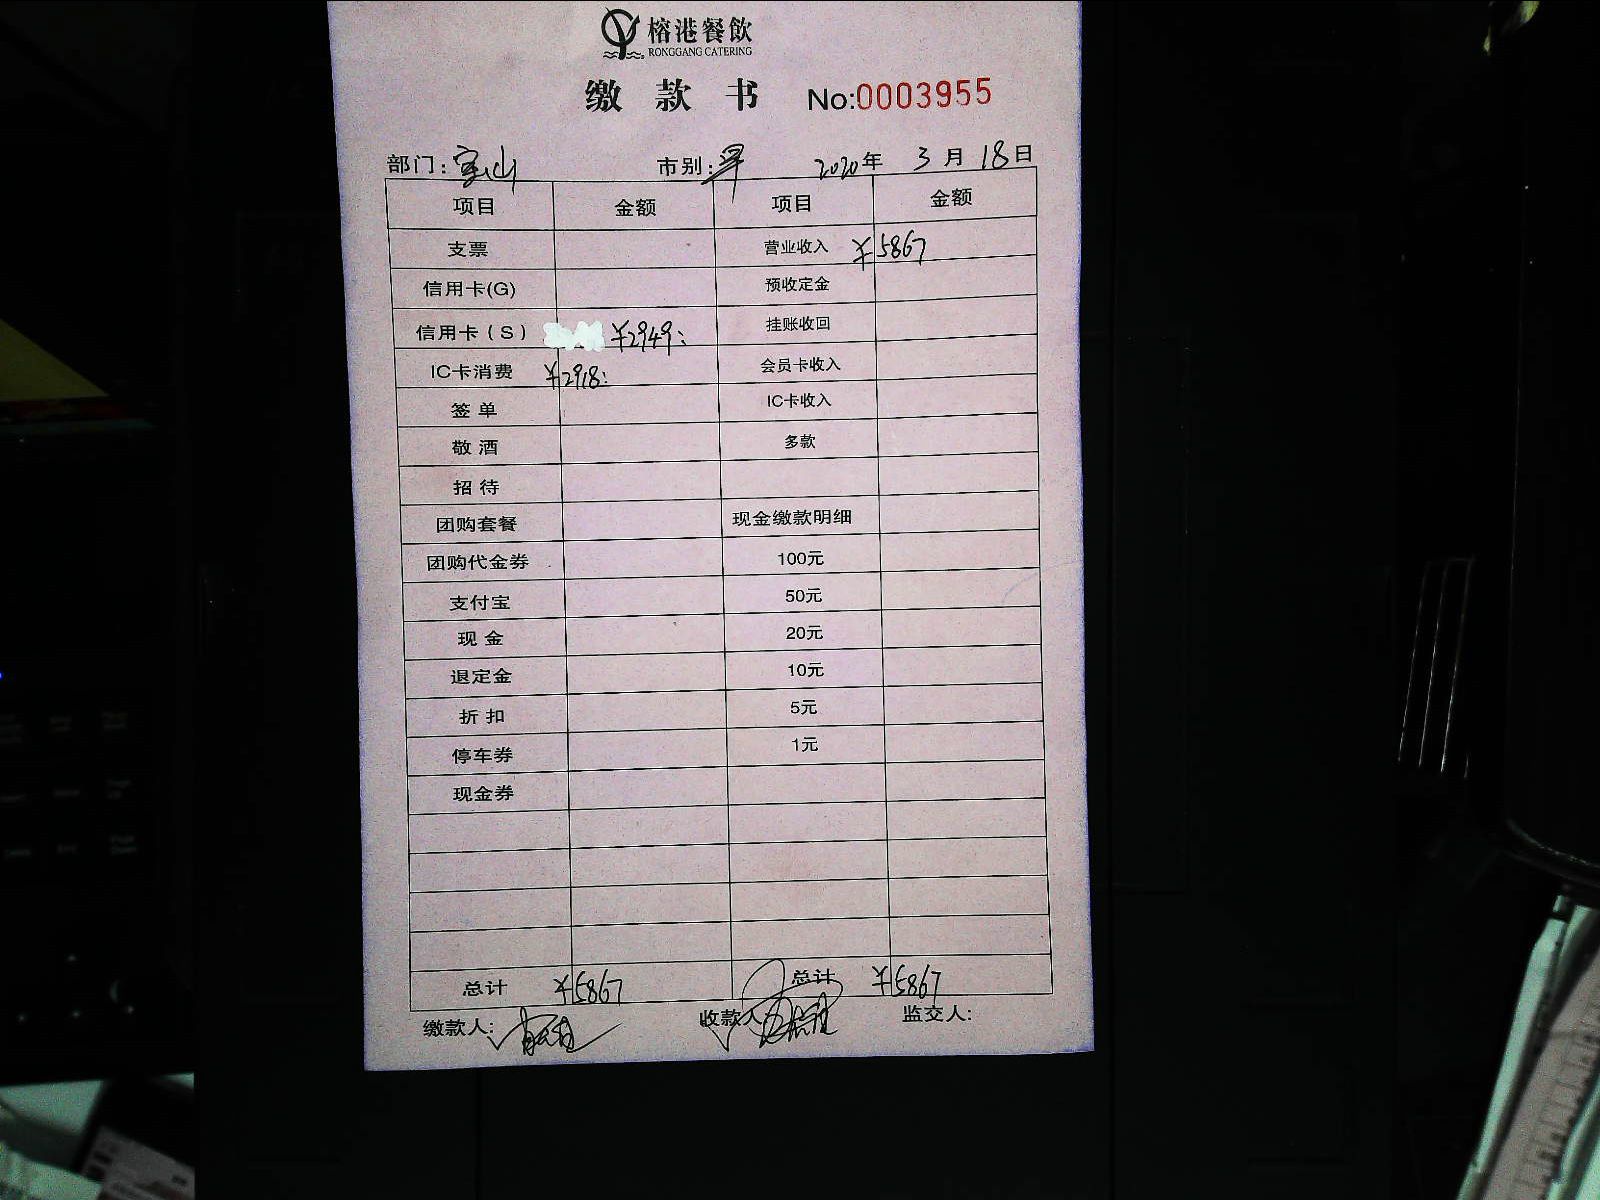 榕港餐飲
RONGGANG CATERING
缴 款 书 No:0003955
部门:宝山 市别:早 2020年 3月 18日
项目 金额 项目 金额
支票 营业收入 ¥5867
信用卡(G) 预收定金
信用卡(S) ¥2949: 挂账收回
IC卡消费 ¥2918: 会员卡收入
签 单 IC卡收入
敬 酒 多款
招 待
团购套餐 现金缴款明细
团购代金券 100元
支付宝 50元
现 金 20元
退定金 10元
折 扣 5元
停车券 1元
现金券
总计 ¥5867 总计 ¥5867
缴款人: 收款人 监交人: